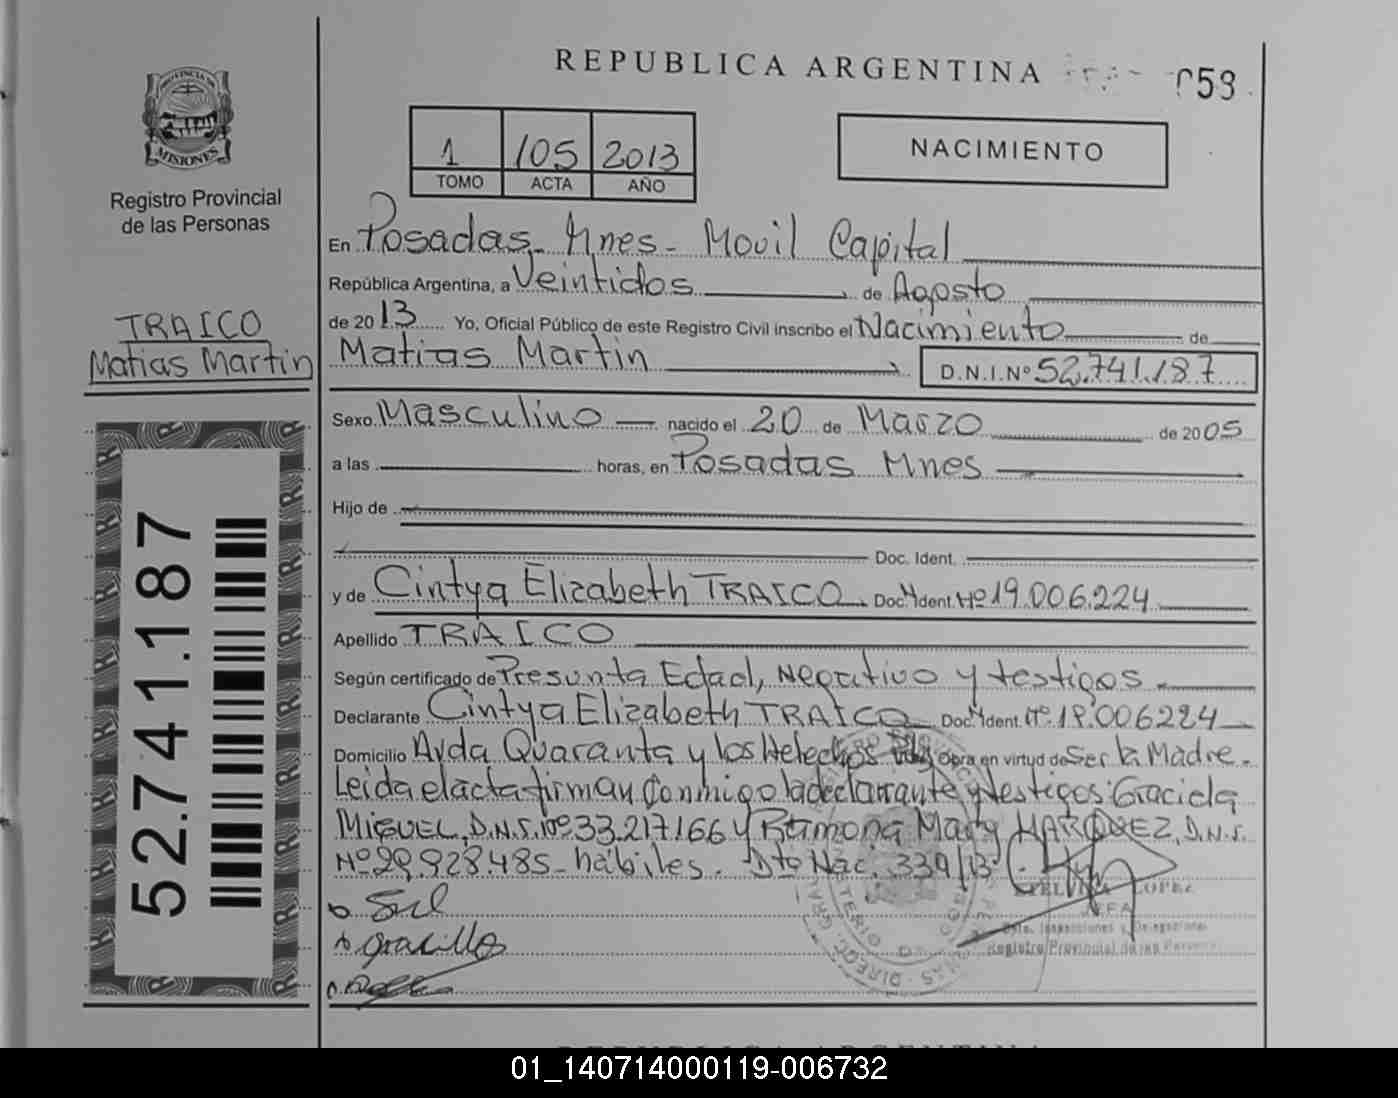 REPUBLICA ARGENTINA
053
PROVINCIA DE
MISIONES
Registro Provincial
de las Personas
1 105 2013
TOMO ACTA AÑO
NACIMIENTO
En Posadas - Mnes - Movil Capital
República Argentina, a Veintidos de Agosto
de 2013 Yo, Oficial Público de este Registro Civil inscribo el Nacimiento de
Matias Martin D.N.I. Nº 52.741.187
TRAICO
Matias Martin
Sexo Masculino nacido el 20 de Marzo de 2005
a las horas, en Posadas Mnes
Hijo de
Doc. Ident.
y de Cintya Elizabeth TRAICO Doc. Ident. Nº 19.006.224
Apellido TRAICO
Según certificado de Presunta Edad, Negativo y testigos
Declarante Cintya Elizabeth TRAICO Doc. Ident. Nº 19.006224
Domicilio Avda Quaranta y los Helechos Obra en virtud de Ser la Madre.
Leida el acta firman conmigo la declarante y testigos: Graciela
MIGUEL, D.N.I. Nº 33.217.166 y Ramona Mary MARQUEZ, D.N.I.
Nº 29.928.485 - hábiles. Dto Nac. 339/13
LOPEZ
JEFA
Dpto. Inspecciones y Delegaciones
Registro Provincial de las Personas
52.741.187
REPUBLICA ARGENTINA
01_140714000119-006732